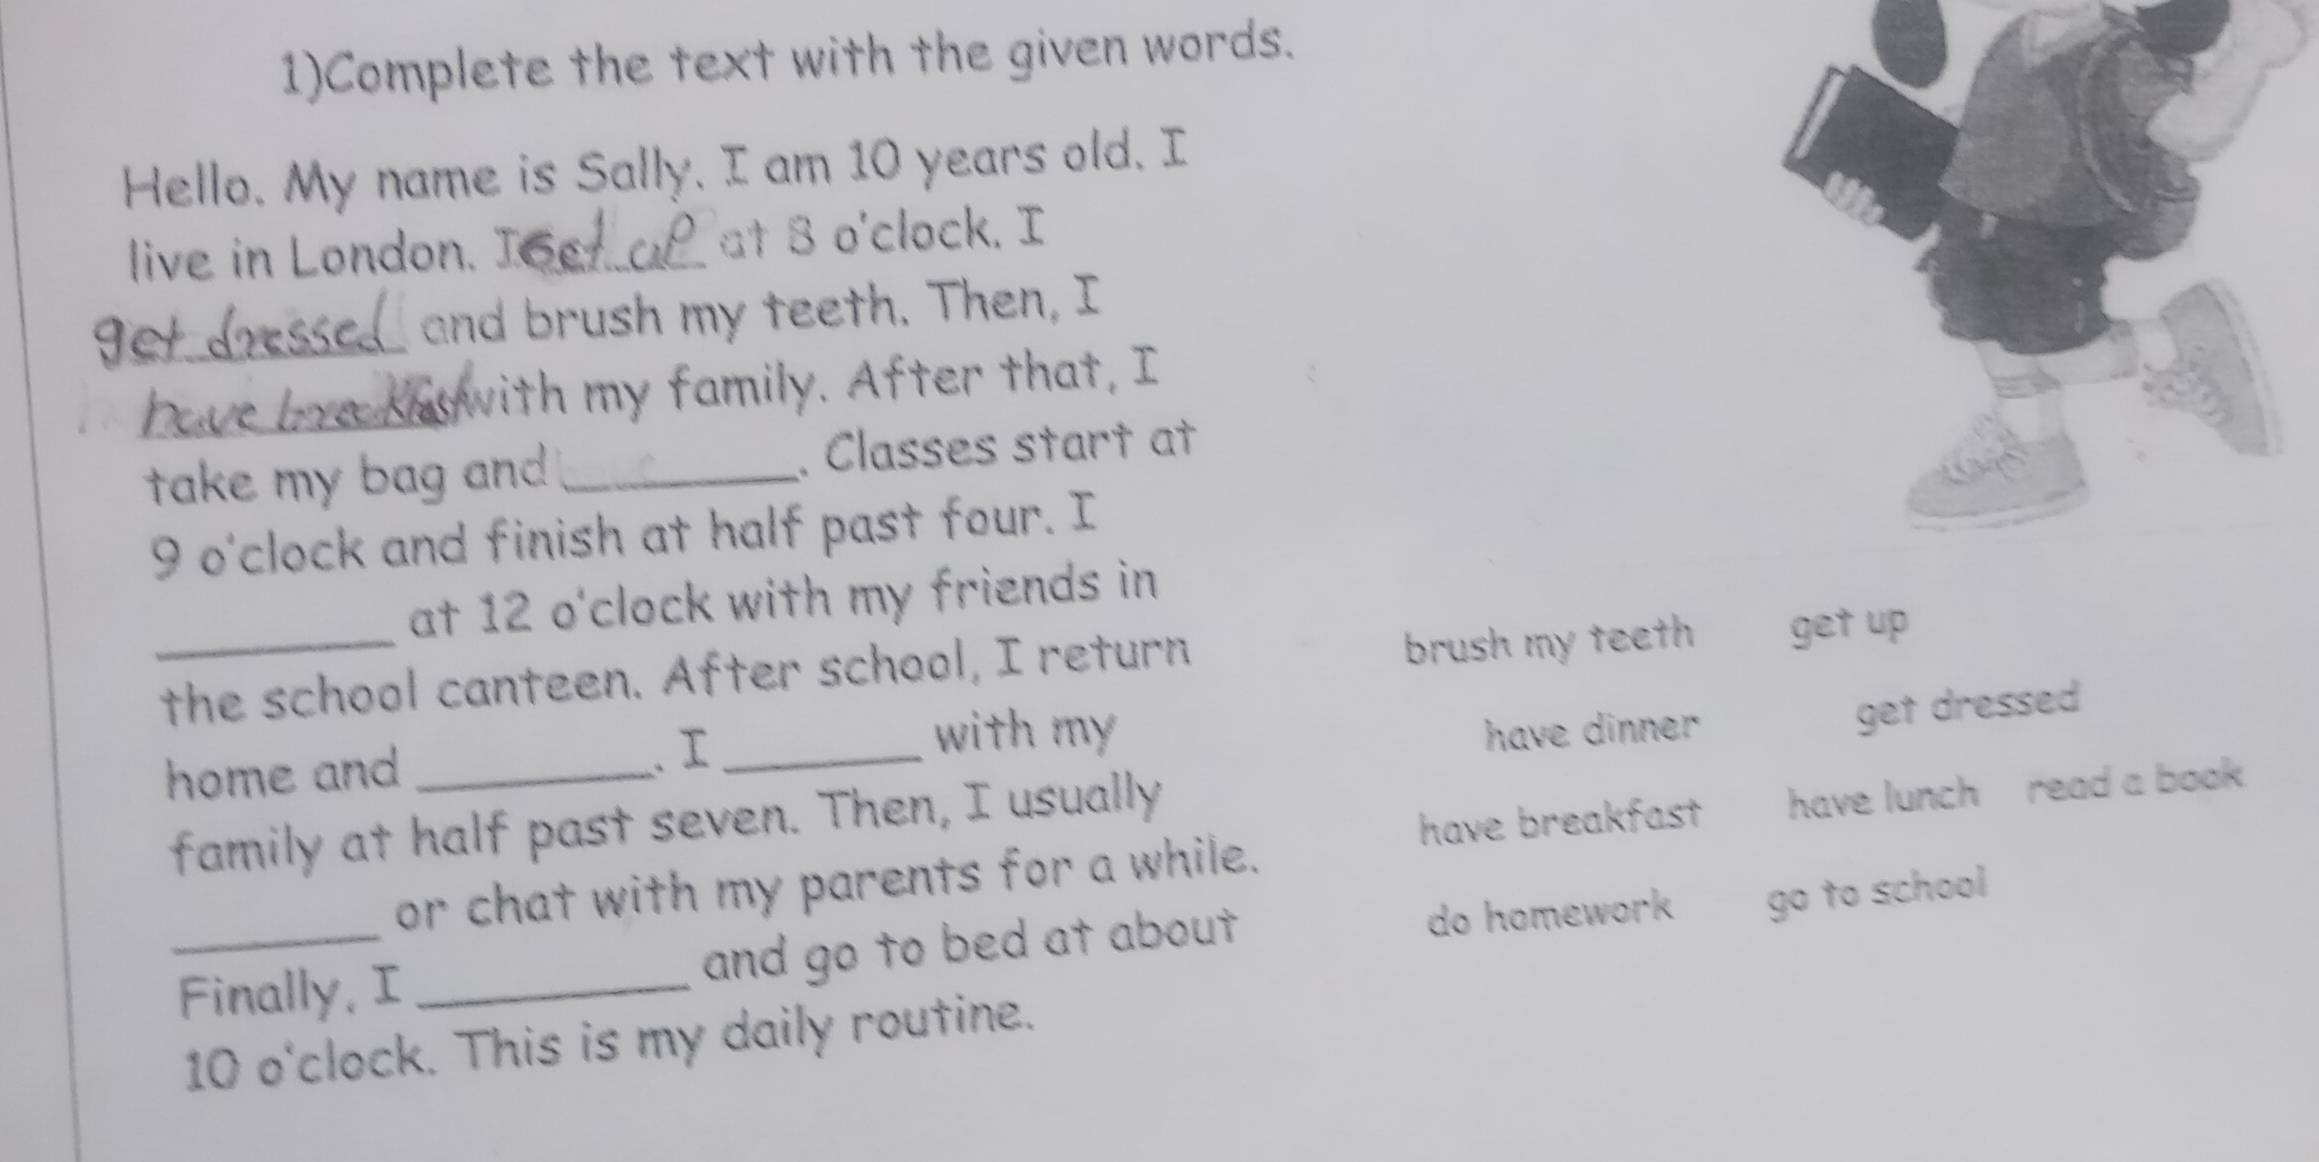 1)Complete the text with the given words.
Hello. My name is Sally. I am 10 years old. I
live in London. I Get up at 8 o'clock. I
get dressed and brush my teeth. Then, I
have breakfast with my family. After that, I
take my bag and ________. Classes start at
9 o'clock and finish at half past four. I
________ at 12 o'clock with my friends in
the school canteen. After school, I return
home and ________. I ________ with my
family at half past seven. Then, I usually
________ or chat with my parents for a while.
Finally, I ________ and go to bed at about
10 o'clock. This is my daily routine.
brush my teeth get up
have dinner get dressed
have breakfast have lunch read a book
do homework go to school